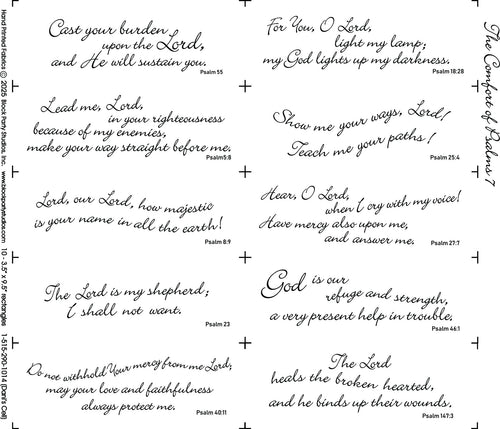 Cast your burden
upon the Lord,
and He will sustain you.
Psalm 55
For You, O Lord,
light my lamp;
my God lights up my darkness.
Psalm 18:28
Lead me, Lord,
in your righteousness
because of my enemies,
make your way straight before me.
Psalm5:8
Show me your ways, Lord!
Teach me your paths!
Psalm 25:4
Lord, our Lord, how majestic
is your name in all the earth!
Psalm 8:9
Hear, O Lord,
when I cry with my voice!
Have mercy also upon me,
and answer me.
Psalm 27:7
The Lord is my shepherd;
I shall not want.
Psalm 23
God is our
refuge and strength,
a very present help in trouble.
Psalm 46:1
Do not withhold Your mercy from me Lord;
may your love and faithfulness
always protect me.
Psalm 40:11
The Lord
heals the broken hearted,
and he binds up their wounds.
Psalm 147:3
The Comfort of Psalms 7
Hand Printed Fabrics © 2025 Block Party Studios, Inc. www.blockpartystudios.com 10 - 3.5" x 9.5" rectangles 1-515-290-1014 (Dan's Cell)